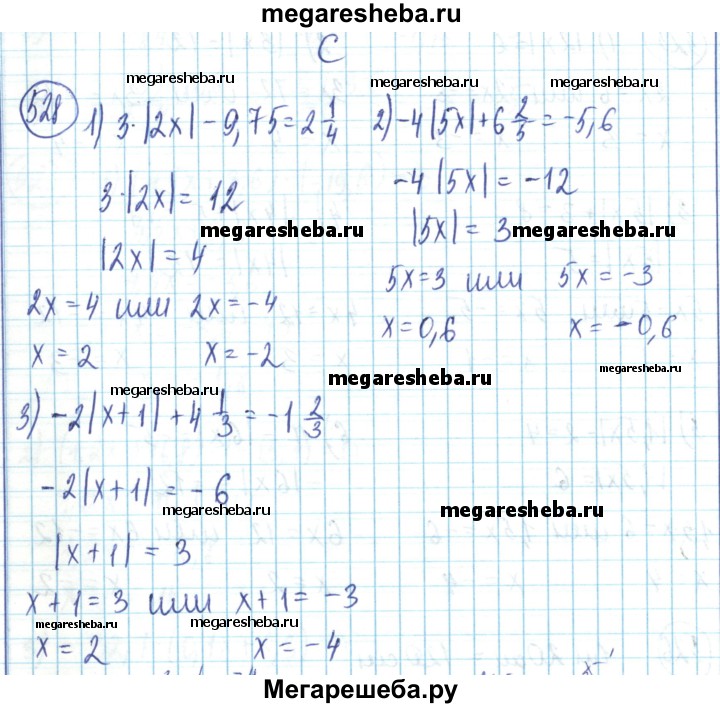 megaresheba.ru
С
528 1) 3·|2x| - 9,75 = 2 1/4
megaresheba.ru
3·|2x| = 12
megaresheba.ru
|2x| = 4
2x = 4 или 2x = -4
x = 2 x = -2
2) -4|5x| + 6 2/5 = -5,6
megaresheba.ru
-4|5x| = -12
|5x| = 3
megaresheba.ru
5x = 3 или 5x = -3
x = 0,6 x = -0,6
megaresheba.ru
megaresheba.ru
megaresheba.ru
3) -2|x+1| + 4 1/3 = -1 2/3
-2|x+1| = -6
megaresheba.ru
megaresheba.ru
|x+1| = 3
x+1 = 3 или x+1 = -3
megaresheba.ru
megaresheba.ru
x = 2 x = -4
Мегарешеба.ру